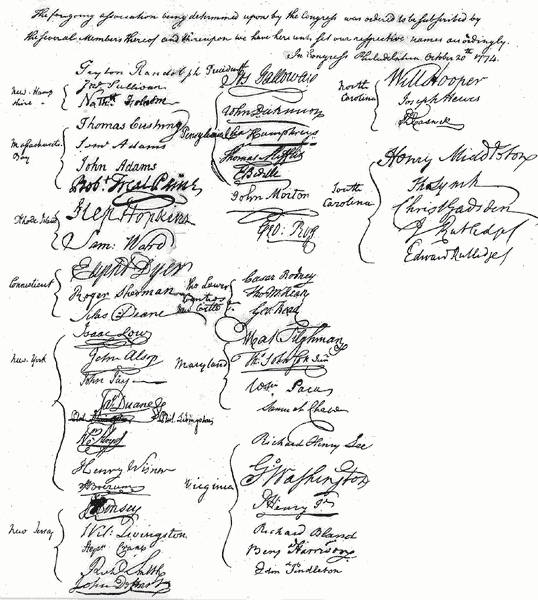 The foregoing association being determined upon by the Congress was ordered to be subscribed by
the several Members thereof and thereupon we have here unto set our respective names accordingly.
In Congress Philadelphia October 20th 1774.
Peyton Randolph President
New Hamp
shire
Jno Sullivan
Nathl Folsom
Massachusetts
Bay
Thomas Cushing
Saml Adams
John Adams
Robt Treat Paine
Rhode Island
Step Hopkins
Sam: Ward
Connecticut
Elipht Dyer
Roger Sherman
Silas Deane
New York
Isaac Low
John Alsop
John Jay
Jas Duane
Phil. Livingston
Wm Floyd
Henry Wisner
S: Boerum
New Jersey
J Kinsey
Wil: Livingston
Stepn Crane
Richd Smith
John DeHart
Pensylvania
Jos Galloway
John Dickinson
Cha Humphreys
Thomas Mifflin
E Biddle
John Morton
Geo: Ross
The Lower
Counties
New Castle
Caesar Rodney
Tho M:Kean
Geo: Read
Maryland
Mat Tilghman
Ths Johnson Junr
Wm Paca
Samuel Chase
Virginia
Richard Henry Lee
Go Washington
P Henry Jr
Richard Bland
Benj Harrison
Edmd Pendleton
North
Carolina
Will Hooper
Joseph Hewes
R Caswell
South
Carolina
Henry Middleton
Tho Lynch
Christ Gadsden
J Rutledge
Edward Rutledge